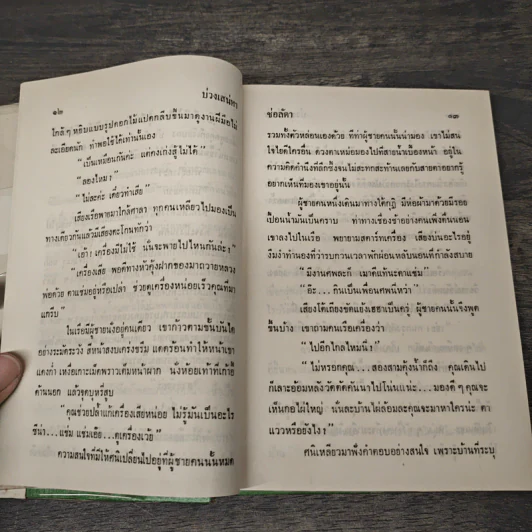 ๑๒
บ่วงเสน่หา
ใกล้ๆ หยิบแบบรูปดอกไม้แปดกลีบขึ้นมาดูงานฝีมือไม่
ละเอียดนัก ทำพอใช้ได้เท่านั้นเอง
“เป็นเหมือนกันค่ะ แต่คงเก่งสู้ไม่ได้”
“ลองไหม”
“ไม่ละค่ะ เดี๋ยวทำเสีย”
เสียงเรือพายมาใกล้ศาลา ทุกคนเหลียวไปมองเป็น
ทางเดียวกันแล้วมีเสียงตะโกนทักว่า
“เอ้า! เครื่องมีไม่ใช้ นั่นจะพายไปไหนกันล่ะ?”
“เครื่องเสีย พอดีทางหัวคุ้งฝากของมาถวายหลวง
พ่อด้วย ตาแช่มอยู่หรือเปล่า ช่วยดูเครื่องหน่อยเร็วคุณที่มา
แกรีบ”
ในเรือมีผู้ชายนั่งอยู่คนเดียว เขาก้าวตามขึ้นบันได
อย่างระมัดระวัง สีหน้าสงบเคร่งขรึม แดดร้อนทำให้หน้าเขา
แดงก่ำ เหงื่อเกาะเม็ดพราวเต็มหน้าผาก นั่งห้อยเท้าที่เก้าอี้
ด้านนอก แล้วจุดบุหรี่สูบ
“คุณช่วยปล้ำแก้เครื่องเสียหน่อย ไม่รู้มันเป็นอะไร
ซีน่า...แช่ม แช่มเอ๊ย...ดูเครื่องเว้ย”
ความสนใจที่มีให้ศนิเปลี่ยนไปอยู่ที่ผู้ชายคนนั้นหมด
ช่อลัดา
๑๓
รวมทั้งตัวหล่อนเองด้วย ที่ทำผู้ชายคนนั้นน่ามอง เขาไม่สน
ใจใยดีใครอื่น ดวงตาเหม่อมองไปที่สายน้ำเบื้องหน้า อยู่ใน
ความคิดคำนึงที่ลึกซึ้งจนไม่สะทกสะท้านเลยกับสายตาอยากรู้
อยากเห็นที่มองเขาอยู่นั้น
ผู้ชายคนหนึ่งเดินมาทางใต้กุฏิ มือห่อผ้ามาด้วยมีรอย
เปื้อนน้ำมันเป็นคราบ ทำท่าทางเชื่องช้าอย่างคนเพิ่งตื่นนอน
เขาลงไปในเรือ พยายามสตาร์ทเครื่อง เสียงบ่นอะไรอยู่
งึมงำทำนองที่ว่ารบกวนเวลาพักผ่อนหลับนอนที่กำลังสบาย
“มีงานศพละก็ เมาดีแท้นะตาแช่ม”
“อ๊ะ...กินเป็นเพื่อนศพนี่หว่า”
เสียงโต้เถียงขัดแย้งเฮฮาเป็นครู่ ผู้ชายคนนั้นจึงพูด
ขึ้นบ้าง เขาถามคนเรือเครื่องว่า
“ไปอีกไกลไหมนี่?”
“ไม่หรอกคุณ...สองสามคุ้งน้ำก็ถึง คุณเดินไป
ก็เลาะอ้อมหลังวัดตัดคันนาไปโน่นแน่ะ...มองดีๆ คุณจะ
เห็นกอไผ่ใหญ่ นั่นละบ้านไผ่ล้อมละคุณจะมาหาใครน่ะ ตา
แววหรือยังไง?”
ศนิเหลียวมาฟังคำตอบอย่างสนใจ เพราะบ้านที่ระบุ